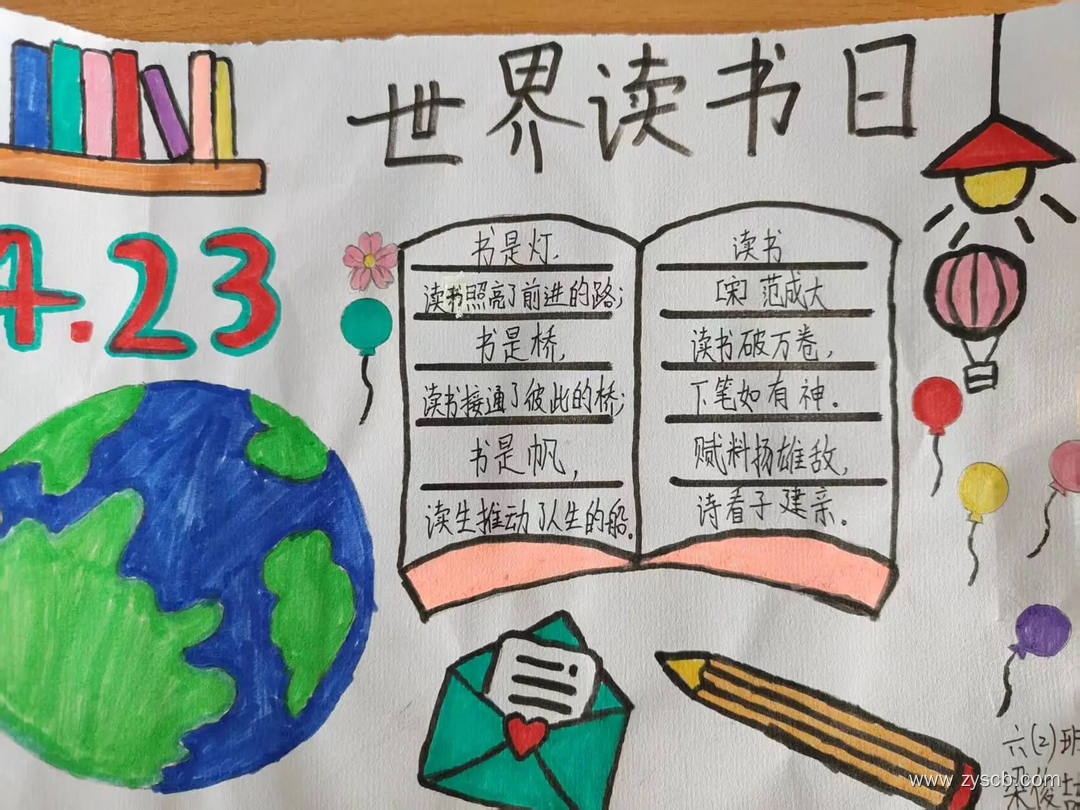 世界读书日
4.23
书是灯.
读书照亮了前进的路;
书是桥,
读书接通了彼此的桥;
书是帆,
读生推动了人生的船.
读书
[宋] 范成大
读书破万卷,
下笔如有神.
赋料扬雄敌,
诗看子建亲.
六(2)班
梁俊
www.zyscb.com